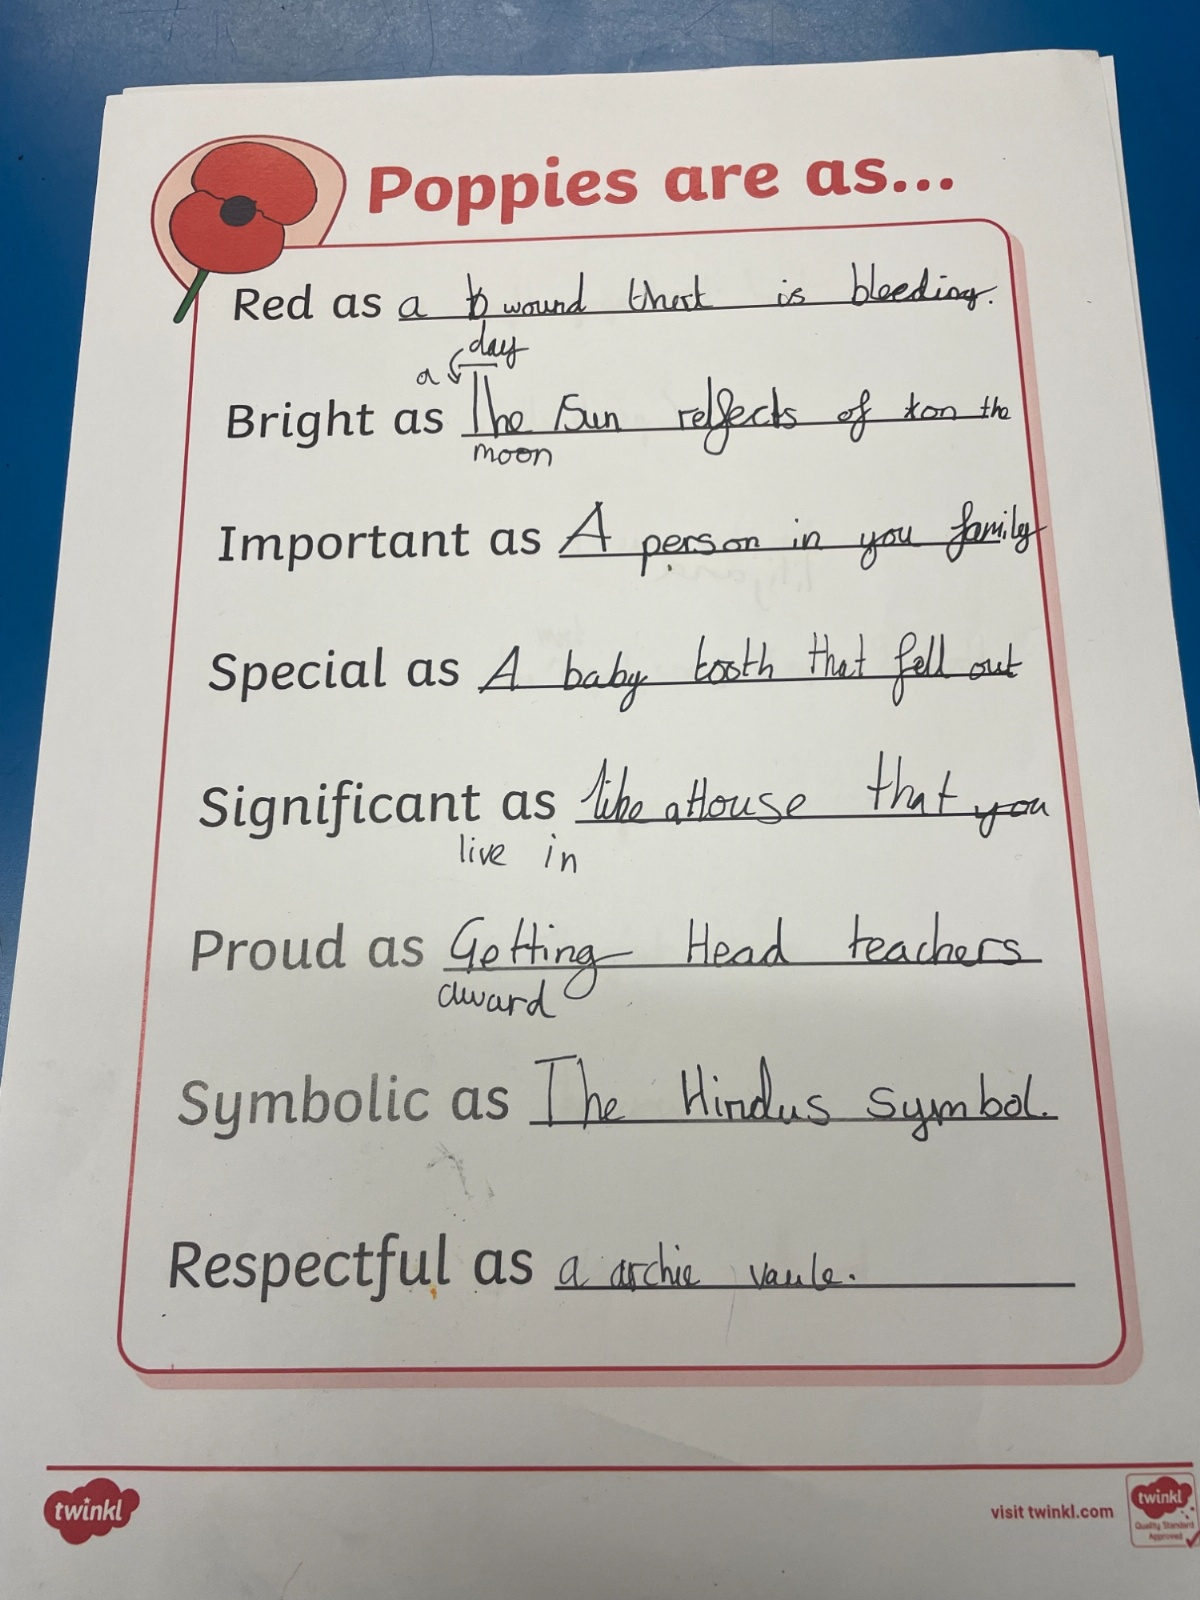 Poppies are as...
Red as a wound that is bleeding.
day
a
Bright as The Sun relfects of on the
moon
Important as A person in you family
Special as A baby tooth that fell out
Significant as like a House that you
live in
Proud as Getting Head teachers
award
Symbolic as The Hindus symbol.
Respectful as a archie vaule.
twinkl
visit twinkl.com
twinkl
Quality Standard
Approved